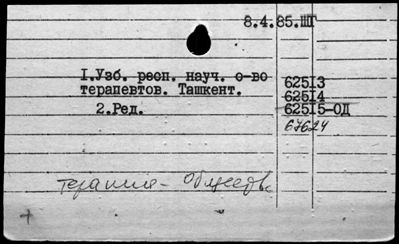 8.4.85.ШГ
I.Узб. респ. науч. о-во
терапевтов. Ташкент.
2.Ред.
62513
62514
62515-ОД
67624
терапия - Общ